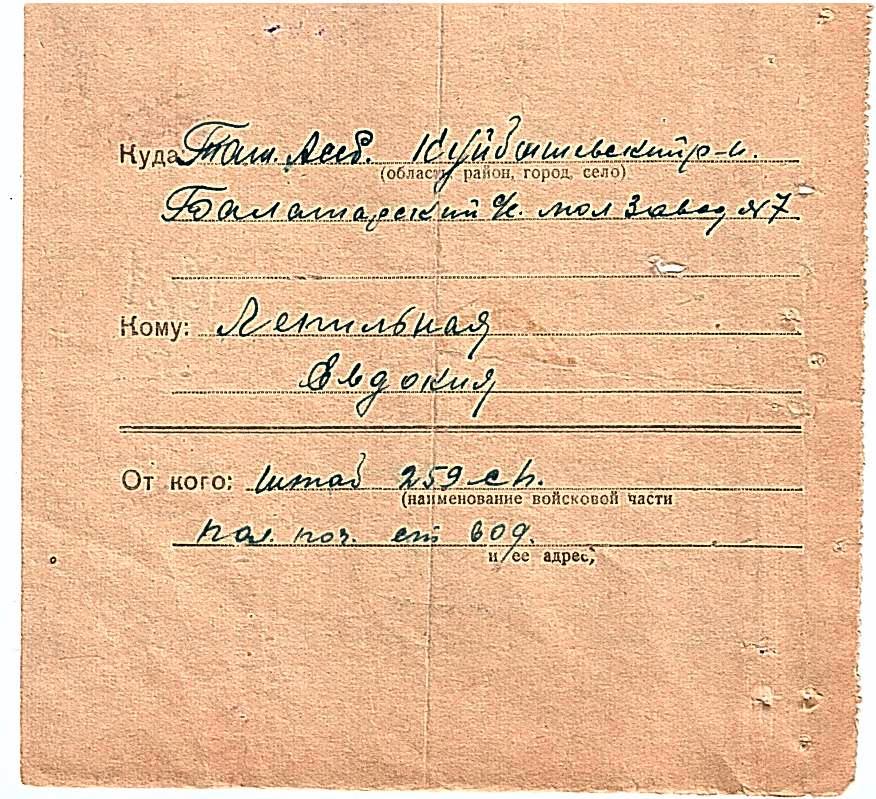 Куда Таш. Куйбышевский р-н.
(область, район, город, село)
Балатарский с/с. мол завод №7
Кому: Лепильная
Евдокия
От кого: штаб 259 сп.
(наименование войсковой части
пол. поч. ст 609.
и ее адрес,